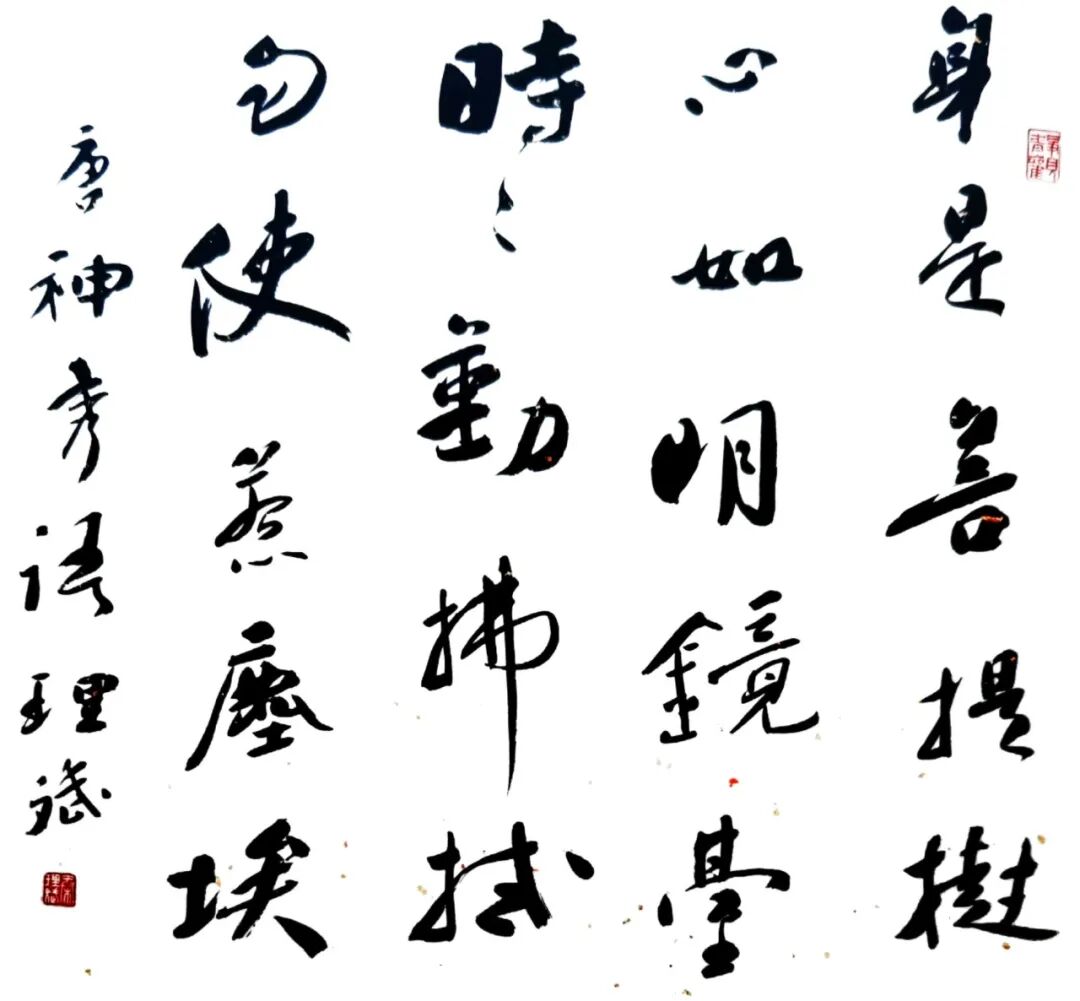 身是菩提樹
心如明鏡臺
時々勤拂拭
勿使惹塵埃
唐神秀語理斌